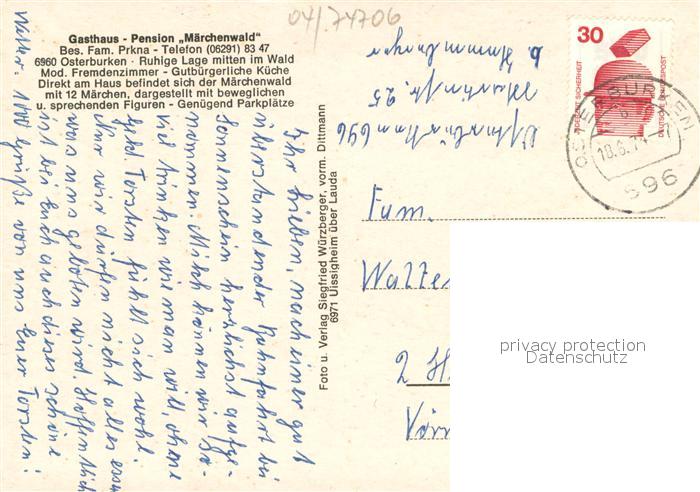 04/74706
Gasthaus - Pension „Märchenwald"
Bes. Fam. Prkna - Telefon (06291) 83 47
6960 Osterburken · Ruhige Lage mitten im Wald
Mod. Fremdenzimmer - Gutbürgerliche Küche
Direkt am Haus befindet sich der Märchenwald
mit 12 Märchen, dargestellt mit beweglichen
u. sprechenden Figuren - Genügend Parkplätze
Ihr Lieben, nach einer gut
überstandenen Bahnfahrt bei
Sonnenschein herzlichst aufge-
nommen. Milch können wir so-
viel trinken wie man will, ohne
Geld. Torsten fühlt sich wohl.
Nur wir dürfen nicht alles essen
was uns geboten wird. Hoffentlich
ist bei Euch auch dieses schöne
Wetter. 1000 Grüße von uns Euer Torsten!
Foto u. Verlag Siegfried Würzberger, vorm. Dittmann
6971 Uissigheim über Lauda
b.
25
696
30
JEDERZEIT SICHERHEIT
DEUTSCHE BUNDESPOST
OSTERBURKEN
696
Fam.
Walte
2 H
privacy protection
Datenschutz